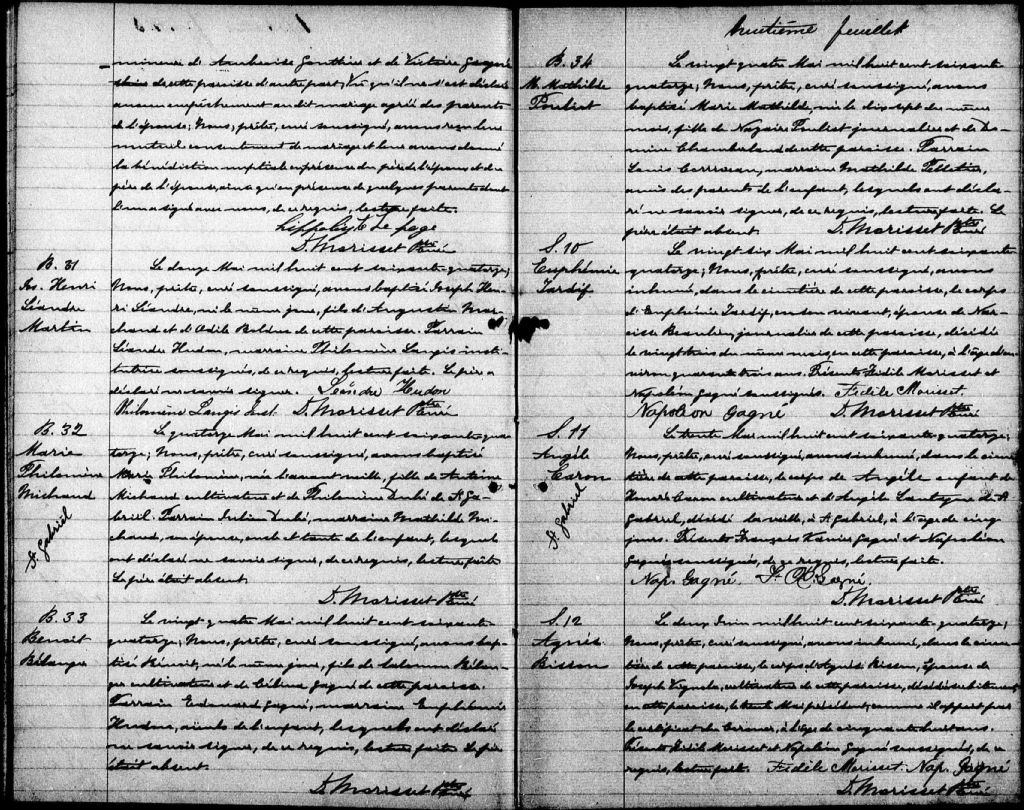 mineure d'Ambroise Gauthier et de Victoire Gagné
de cette paroisse d'autre part, Vu qu'il ne s'est déclaré
aucun empêchement au dit mariage agréé des parents
de l'épouse; Nous, prêtre, curé soussigné, avons reçu leur
mutuel consentement de mariage et leur avons donné
la bénédiction nuptiale en présence du père de l'époux et du
père de l'épouse, ainsi qu'en présence de quelques parents dont
l'un a signé avec nous, de ce requis, lecture faite.
Hippolyte Le page
D. Morisset Ptre Curé
B. 31
Jos. Henri
Léandre
Martin
Le douze Mai mil huit cent soixante quatorze;
Nous, prêtre, curé soussigné, avons baptisé Joseph Hen-
ri Léandre, né le même jour, fils d'Auguste Mar-
chand et d'Odile Bolduc de cette paroisse. Parrain
Léandre Hudon, marraine Philomène Langis insti-
tutrice soussignés, de ce requis, lecture faite. Le père a
déclaré ne savoir signer. Léandre Hudon
Philomène Langis Inst. D. Morisset Ptre Curé
B. 32
Marie
Philomène
Michaud
St. Gabriel
Le quatorze Mai mil huit cent soixante qua-
torze; Nous, prêtre, curé soussigné, avons baptisé
Marie Philomène, née l'avant veille, fille de Antoine
Michaud cultivateur et de Philomène Dubé de St Ga-
briel. Parrain Julien Dubé, marraine Mathilde Mi-
chaud, son épouse, oncle et tante de l'enfant, lesquels
ont déclaré ne savoir signer, de ce requis, lecture faite.
Le père était absent.
D. Morisset Ptre Curé
B. 33
Benoit
Bélanger
Le vingt quatre Mai mil huit cent soixante
quatorze; Nous, prêtre, curé soussigné, avons bap-
tisé Benoit, né le même jour, fils de Salomon Bélan-
ger cultivateur et de Célina Gagné de cette paroisse.
Parrain Edouard Gagné, marraine Euphémie
Hudon, aïeuls de l'enfant, lesquels ont déclaré
ne savoir signer, de ce requis, lecture faite. Le père
était absent.
D. Morisset Ptre Curé
huitième feuillet
B. 34
M. Mathilde
Pouliot
Le vingt quatre Mai mil huit cent soixante
quatorze; Nous, prêtre, curé soussigné, avons
baptisé Marie Mathilde, née le dix sept du même
mois, fille de Nazaire Pouliot journalier et de
Chamberland de cette paroisse. Parrain
Louis Corriveau, marraine Mathilde Pelletier,
amis des parents de l'enfant, lesquels ont décla-
ré ne savoir signer, de ce requis, lecture faite. Le
père était absent. D. Morisset Ptre Curé
S. 10
Euphémie
Tardif
Le vingt six Mai mil huit cent soixante
quatorze; Nous, prêtre, curé soussigné, avons
inhumé, dans le cimetière de cette paroisse, le corps
d'Euphémie Tardif, en son vivant, épouse de Nar-
cisse Beaulieu, journalier de cette paroisse, décédée
le vingt trois du même mois, en cette paroisse, à l'âge d'en-
viron quarante trois ans. Présents Fidèle Morisset et
Napoléon Gagné soussignés. Fidèle Morisset.
Napoléon Gagné D. Morisset Ptre Curé
S. 11
Angèle
Caron
St. Gabriel
Le trente Mai mil huit cent soixante quatorze;
Nous, prêtre, curé soussigné, avons inhumé, dans le cime-
tière de cette paroisse, le corps de Angèle enfant de
Honoré Caron cultivateur et d'Angèle Lavigne de St
Gabriel, décédée la veille, à St Gabriel, à l'âge de cinq
jours. Présents François Xavier Gagné et Napoléon
Gagné soussignés, de ce requis, lecture faite.
Nap. Gagné. F. X. Gagné.
D. Morisset Ptre Curé
S. 12
Agnès
Bisson
Le deux Juin mil huit cent soixante quatorze;
Nous, prêtre, curé soussigné, avons inhumé, dans le cime-
tière de cette paroisse, le corps d'Agnès Bisson, Epouse de
Joseph Vignola, cultivateur de cette paroisse, décédée subitement
en cette paroisse, le trente Mai précédent, comme il appert par
le certificat du Coroner, à l'âge de cinquante huit ans.
Présents Fidèle Morisset et Napoléon Gagné soussignés, de ce
requis, lecture faite. Fidèle Morisset. Nap. Gagné
D. Morisset Ptre Curé